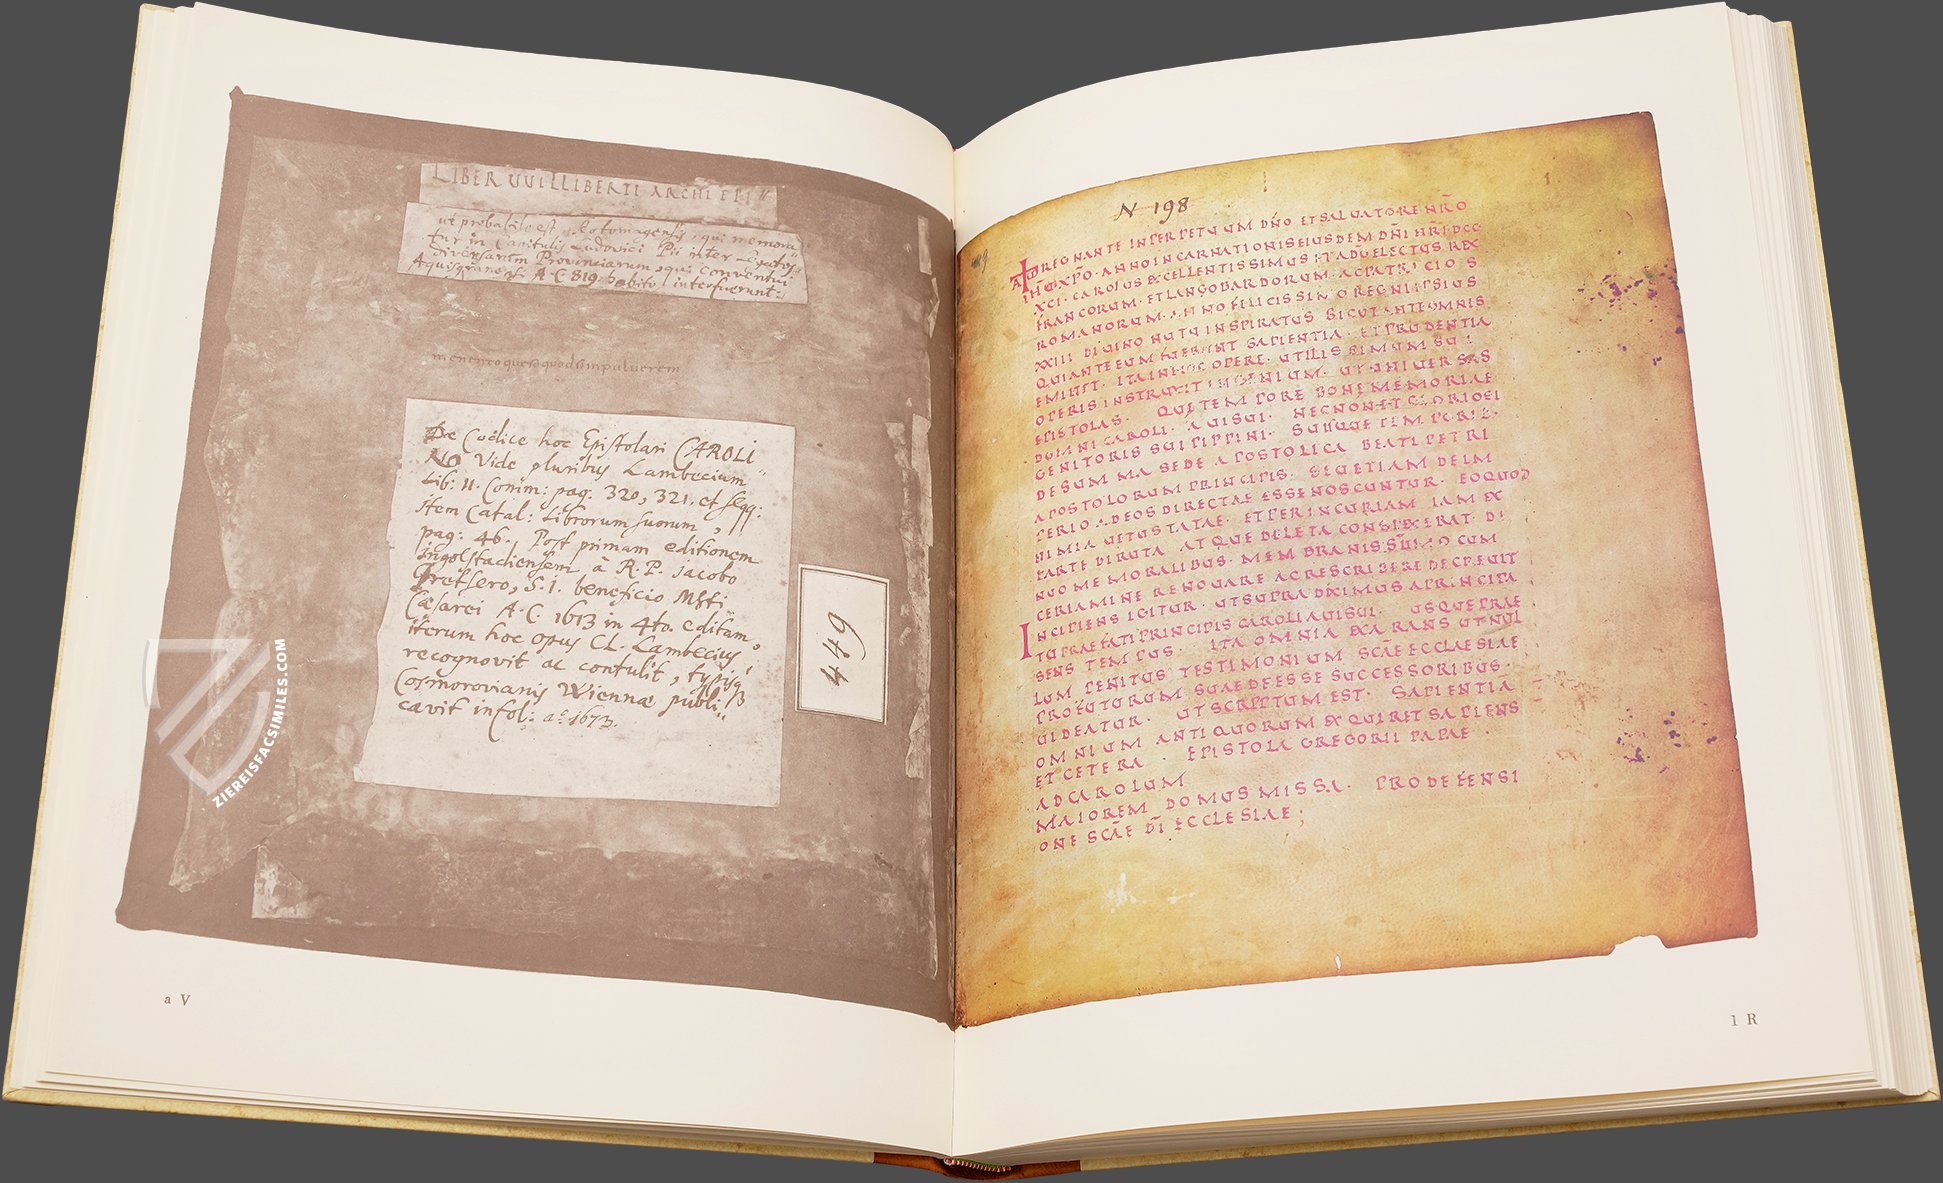 LIBER UUILLIBERTI ARCHI EPI"
ut probabile est Rotomagensis, qui memora"
tur in Capitulis Ludovici Pii inter Legatos
diversarum Provinciarum, qui conventui
Aquisgranensi A.C. 819. habito interfuerunt.
De Codice hoc Epistolari CAROLI
Vide pluribus Lambecium
Lib: II. Comm: pag. 320, 321. et seqq:
item Catal: Librorum suorum,
pag: 46. Post primam editionem
Ingolstadiensem à R. P. Jacobo
Gretsero, S. I. beneficio
Caesarei A. C. 1613 in 4to. editam,
iterum hoc opus CL. Lambecius
recognovit ac contulit, typisq
Cosmorovianis Wiennae publi"
cavit in fol: aº 1673.
449
ZIEREISFACSIMILES.COM
a V
N 198
REGNANTE INPERPETUUM DÑO ETSALUATORE NRÕ
IHU XPÕ. ANNO INCARNATIONIS EIUSDEM DÑI NRI DCC
XCI. CAROLUS EXCELLENTISSIMUS ET A DÕ ELECTUS REX
FRANCORUM. ET LANGOBARDORUM. AC PATRICIUS
ROMANORUM. ANNO FELICISSIMO REGNI IPSIUS
XXIII DIUINO NUTU INSPIRATUS SICUT ANTE OMNES
QUI ANTE EUM FUERUNT SAPIENTIA. ET PRUDENTIA
EMINET. ITA IN HOC OPERE. UTILISSIMUM SUI
OPERIS INSTRUXIT INGENIUM. UT UNIUERSAS
EPISTOLAS. QUE TEMPORE BONE MEMORIAE
DOMNI CAROLI. AUI SUI. NECNON ET GLORIOSI
GENITORIS SUI PIPPINI. SUIQUE TEMPORIB.
DE SUMMA SEDE APOSTOLICA BEATI PETRI
APOSTOLORUM PRINCIPIS. SEU ETIAM DE IM
PERIO AD EOS DIRECTAE ESSE NOSCUNTUR. EO QUOD
NIMIA UETUSTATAE. ET PER INCURIAM IAM EX
PARTE DIRUTA ATQUE DELETA CONSPEXERAT. DE
NUO MEMORALIBUS. MEMBRANIS SUMMO CUM
CERTAMINE RENOUARE AC RESCRIBERE DECREUIT
INCIPIENS IGITUR. UT SUPRA DIXIMUS A PRINCIPA
TU PRAEFATI PRINCIPIS CAROLI AUI SUI. USQUE PRAE
SENS TEMPUS. ITA OMNIA EXARANS UT NUL
LUM PENITUS TESTIMONIUM SCAE ECCLAESIAE
PROFUTURUM SUAE DEESSE SUCCESSORIBUS.
UIDEATUR. UT SCRIPTUM EST. SAPIENTIÃ
OMNIUM ANTIQUORUM EXQUIRET SAPIENS
ET CETERA. EPISTOLA GREGORII PAPAE.
AD CAROLUM
MAIOREM DOMUS MISSA. PRO DEFENSI
ONE SCÃE DĨ ECCLESIAE;
1 R